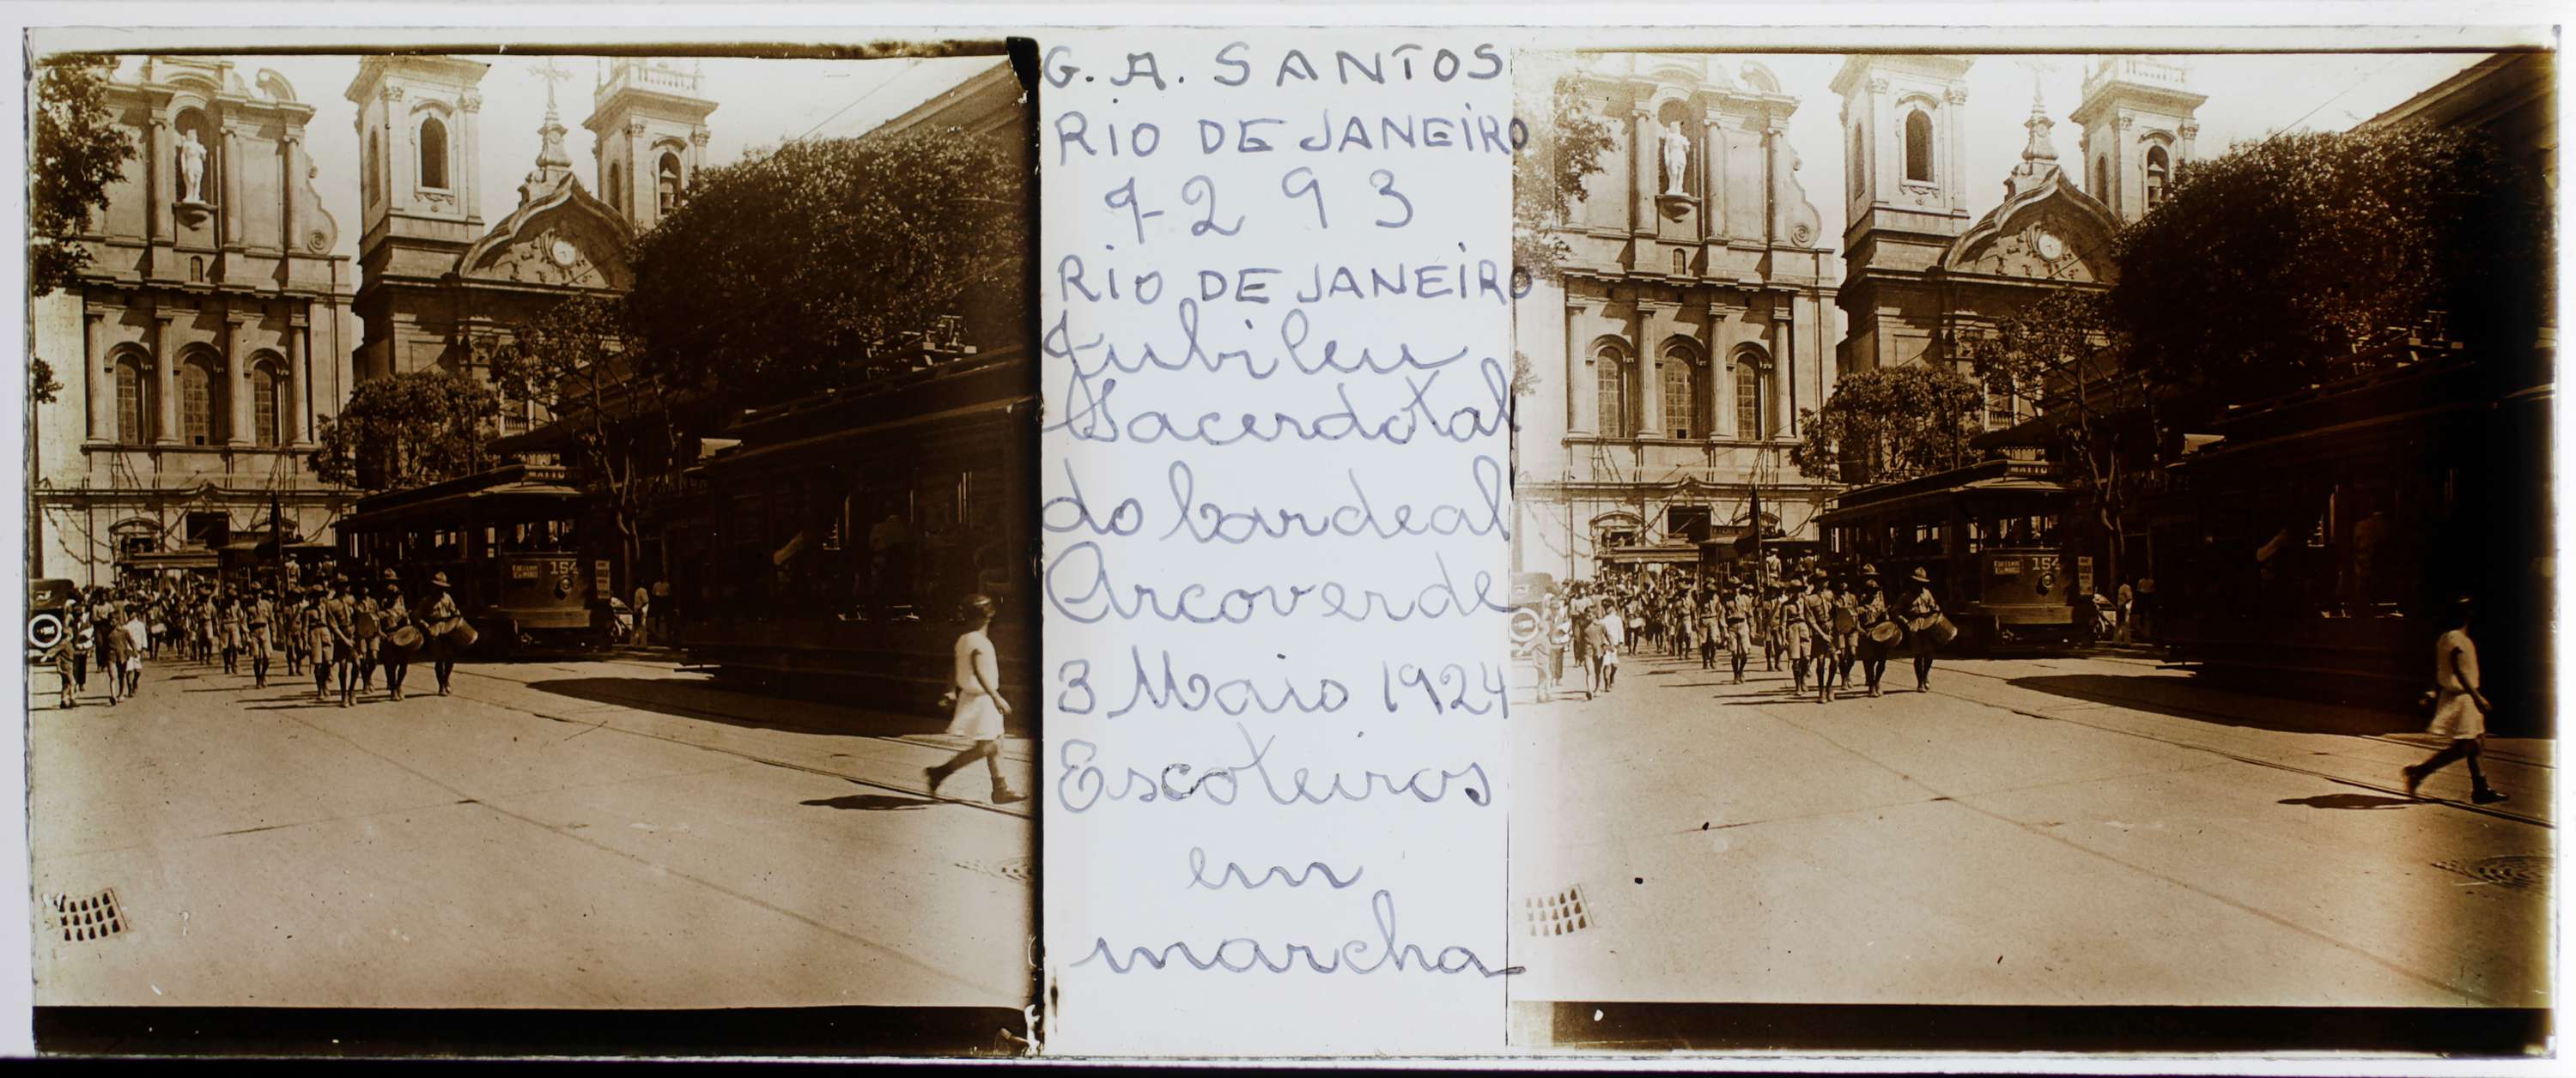 G. A. SANTOS
RIO DE JANEIRO
7293
RIO DE JANEIRO
Jubileu
Sacerdotal
do Cardeal
Arcoverde
3 Maio 1924
Escoteiros
em
marcha
154
154